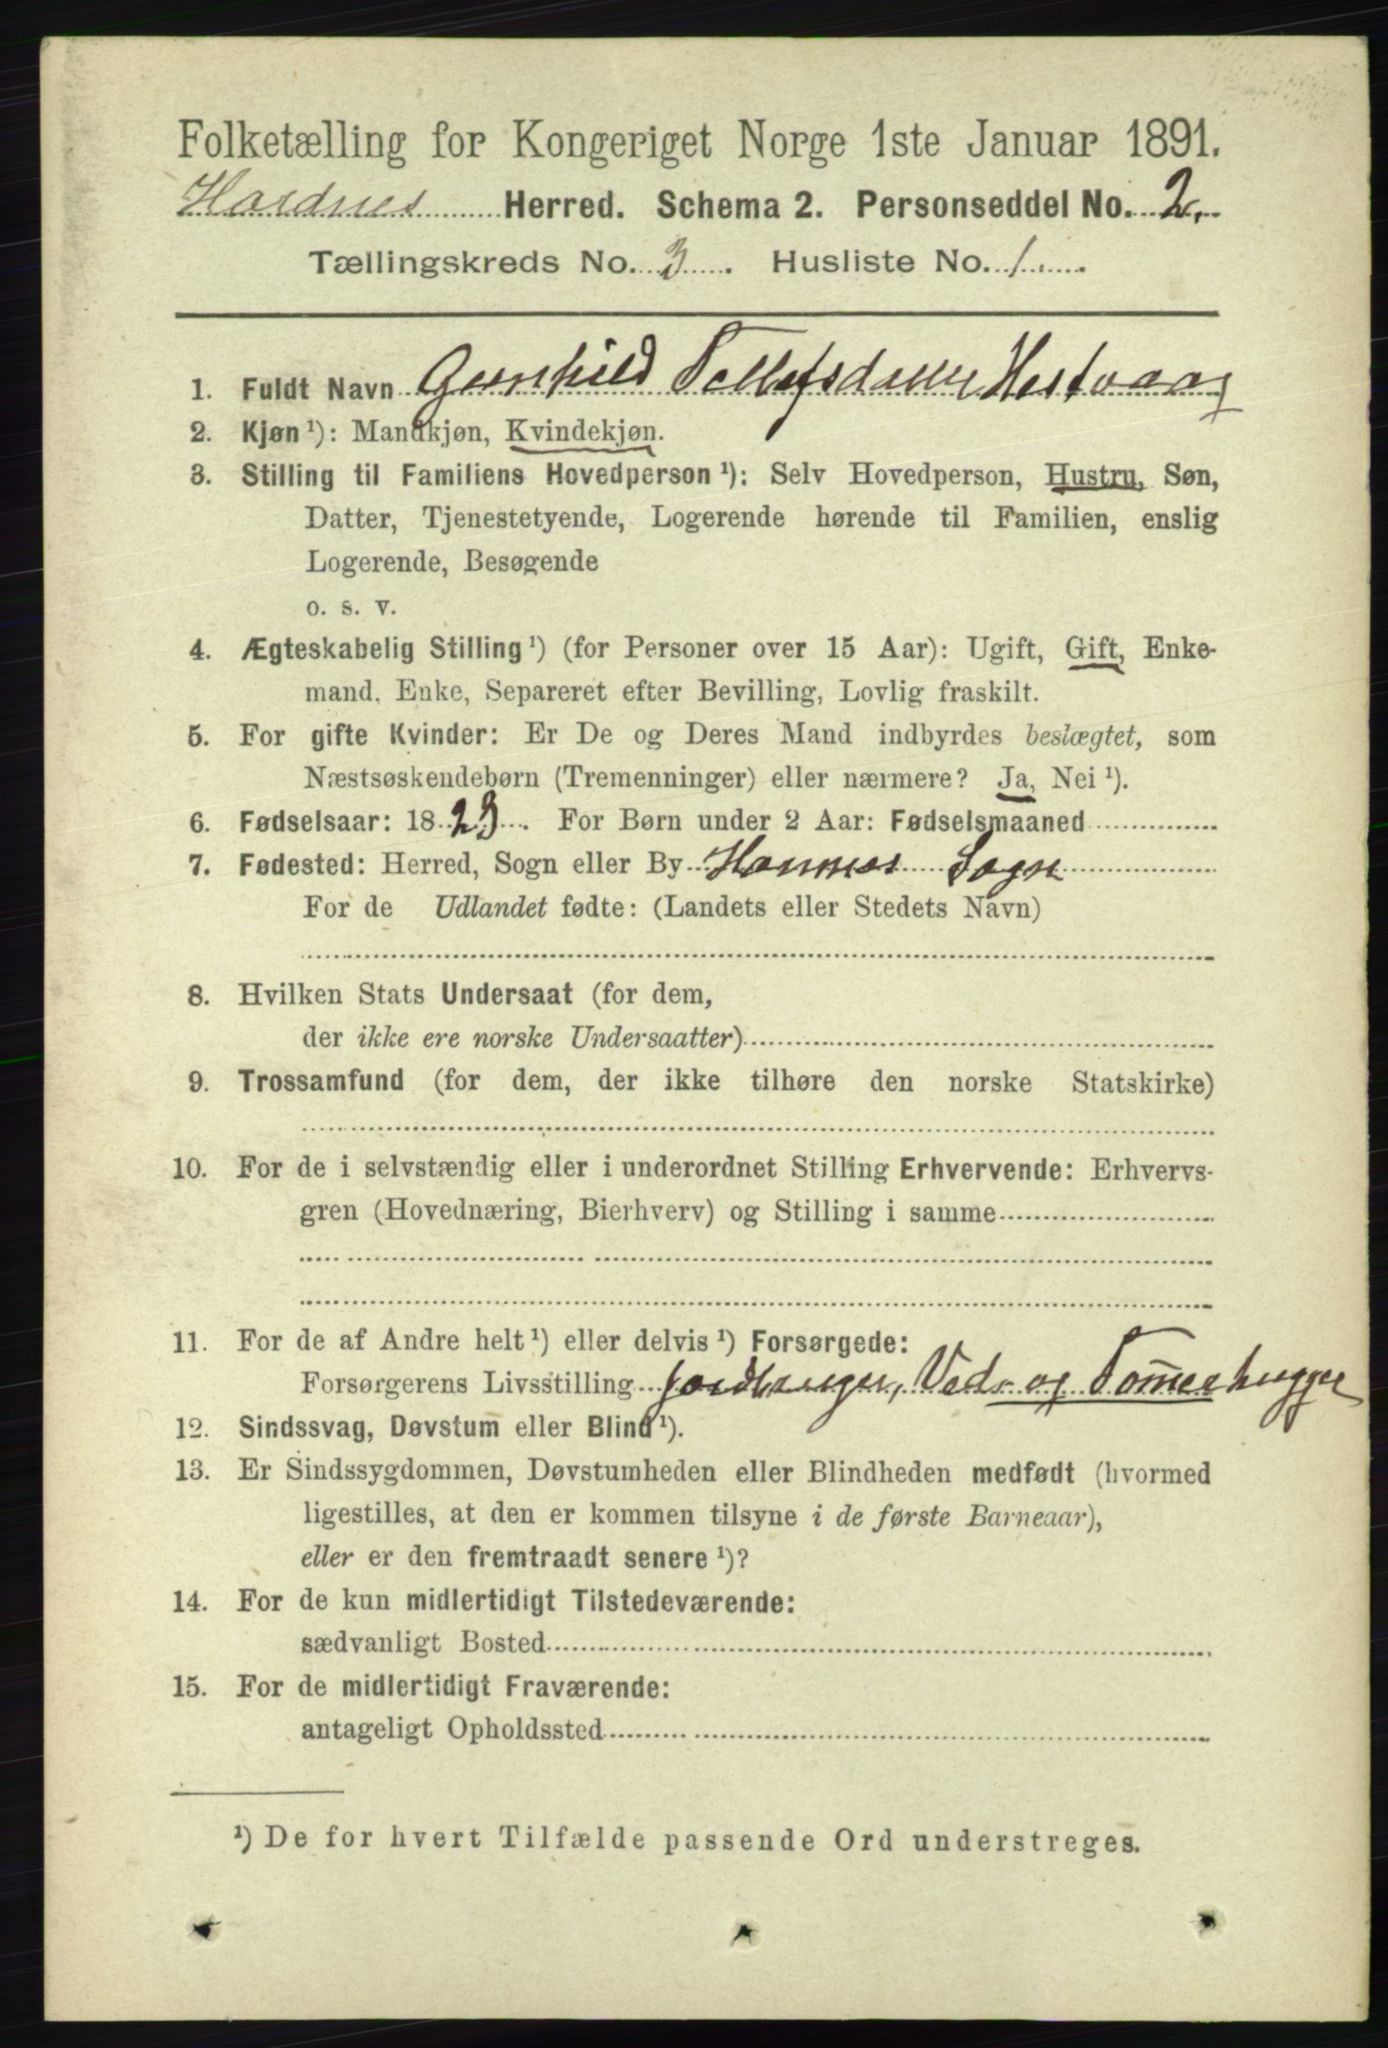 Folketælling for Kongeriget Norge 1ste Januar 1891.
Herred. Schema 2. Personseddel No. 2.
Tællingskreds No. 3. Husliste No. 1.
1. Fuldt Navn Gunhild Tellefsdatter Hestvaag
2. Kjøn ¹): Mandkjøn, Kvindekjøn.
3. Stilling til Familiens Hovedperson ¹): Selv Hovedperson, Hustru, Søn,
Datter, Tjenestetyende, Logerende hørende til Familien, enslig
Logerende, Besøgende
o. s. v.
4. Ægteskabelig Stilling ¹) (for Personer over 15 Aar): Ugift, Gift, Enke-
mand, Enke, Separeret efter Bevilling, Lovlig fraskilt.
5. For gifte Kvinder: Er De og Deres Mand indbyrdes beslægtet, som
Næstsøskendebørn (Tremenninger) eller nærmere? Ja, Nei ¹).
6. Fødselsaar: 1823. For Børn under 2 Aar: Fødselsmaaned
7. Fødested: Herred, Sogn eller By Sogn
For de Udlandet fødte: (Landets eller Stedets Navn)
8. Hvilken Stats Undersaat (for dem,
der ikke ere norske Undersaatter)
9. Trossamfund (for dem, der ikke tilhøre den norske Statskirke)
10. For de i selvstændig eller i underordnet Stilling Erhvervende: Erhvervs-
gren (Hovednæring, Bierhverv) og Stilling i samme
11. For de af Andre helt ¹) eller delvis ¹) Forsørgede:
Forsørgerens Livsstilling Jordbruger, Ved- og Tømmerhugger
12. Sindssvag, Døvstum eller Blind ¹).
13. Er Sindssygdommen, Døvstumheden eller Blindheden medfødt (hvormed
ligestilles, at den er kommen tilsyne i de første Barneaar),
eller er den fremtraadt senere ¹)?
14. For de kun midlertidigt Tilstedeværende:
sædvanligt Bosted
15. For de midlertidigt Fraværende:
antageligt Opholdssted
¹) De for hvert Tilfælde passende Ord understreges.